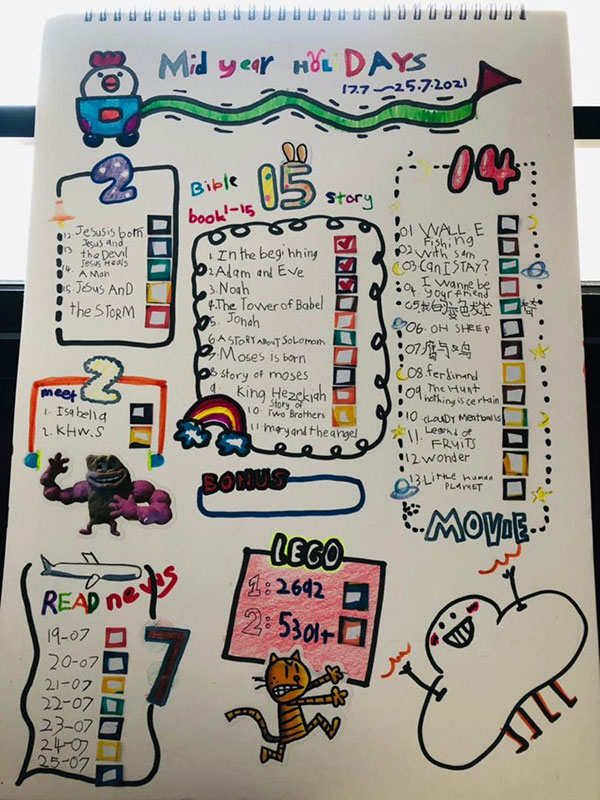 Mid year HOLIDAYS
17.7 ~25.7.2021
2
12. Jesus is born
13. Jesus and the Devil
14. Jesus Heals A Man
15. Jesus AnD the STORM
Bible 15 story
book 1-15
1. In the beginning
2. Adam and Eve
3. Noah
4. The Tower of Babel
5. Jonah
6. A STORY ABOUT SOLOMON
7. Moses is born
8. Story of moses
9. King Hezekiah
10. Story of Two Brothers
11. mary and the angel
14
01 WALL.E
02 Fishing with sam
03 Can I STAY?
04 I wanne be your friend
06. OH SHEEP
07
08 ferdinand
09 The Hunt nothing is certain
10. CLOUDY Meatballs
11. Legend of FRUITS
12 Wonder
13 Little human PLANET
MOVIE
meet 2
1. Isabella
2. KHW.S
BONUS
READ news
7
19-07
20-07
21-07
22-07
23-07
24-07
25-07
LEGO
1: 2692
2: 5301+